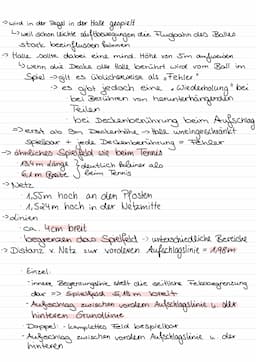 → wird in der Regel in der Halle gespielt
↳ weil schon leichte Luftbewegungen die Flugbahn des Balles
stark beeinflussen können
→ Halle sollte dabei eine mind. Höhe von 5m aufweisen
↳ wenn die Decke der Halle berührt wird vom Ball im
Spiel → gilt es üblicherweise als "Fehler"
→ es gibt jedoch eine "Wiederholung" bei
bei Berühren von herunterhängenden
Teilen
· bei Deckenberührung beim Aufschlag
→ erst ab 9m Deckenhöhe → Halle uneingeschränkt
spielbar + jede Deckenberührung = Fehler
→ ähnliches Spielfeld wie beim Tennis
13,4m Länge } deutlich kleiner als
6,1m Breite } beim Tennis
→ Netz
· 1,55m hoch an den Pfosten
· 1,524m hoch in der Netzmitte
→ Linien
· ca. 4cm breit
· begrenzen das Spielfeld → unterschiedliche Bereiche
→ Distanz v. Netz zur vorderen Aufschlagslinie = 1,98m
· Einzel:
· innere Begrenzungslinie stellt die seitliche Feldbegrenzung
dar => Spielfeld 5,18m breit
· Aufschlag zwischen vordern Aufschlagslinie u. der
hinteren Grundlinie
· Doppel: · komplettes Feld bespielbar
· Aufschlag zwischen vordern Aufschlagslinie u. der
hinteren